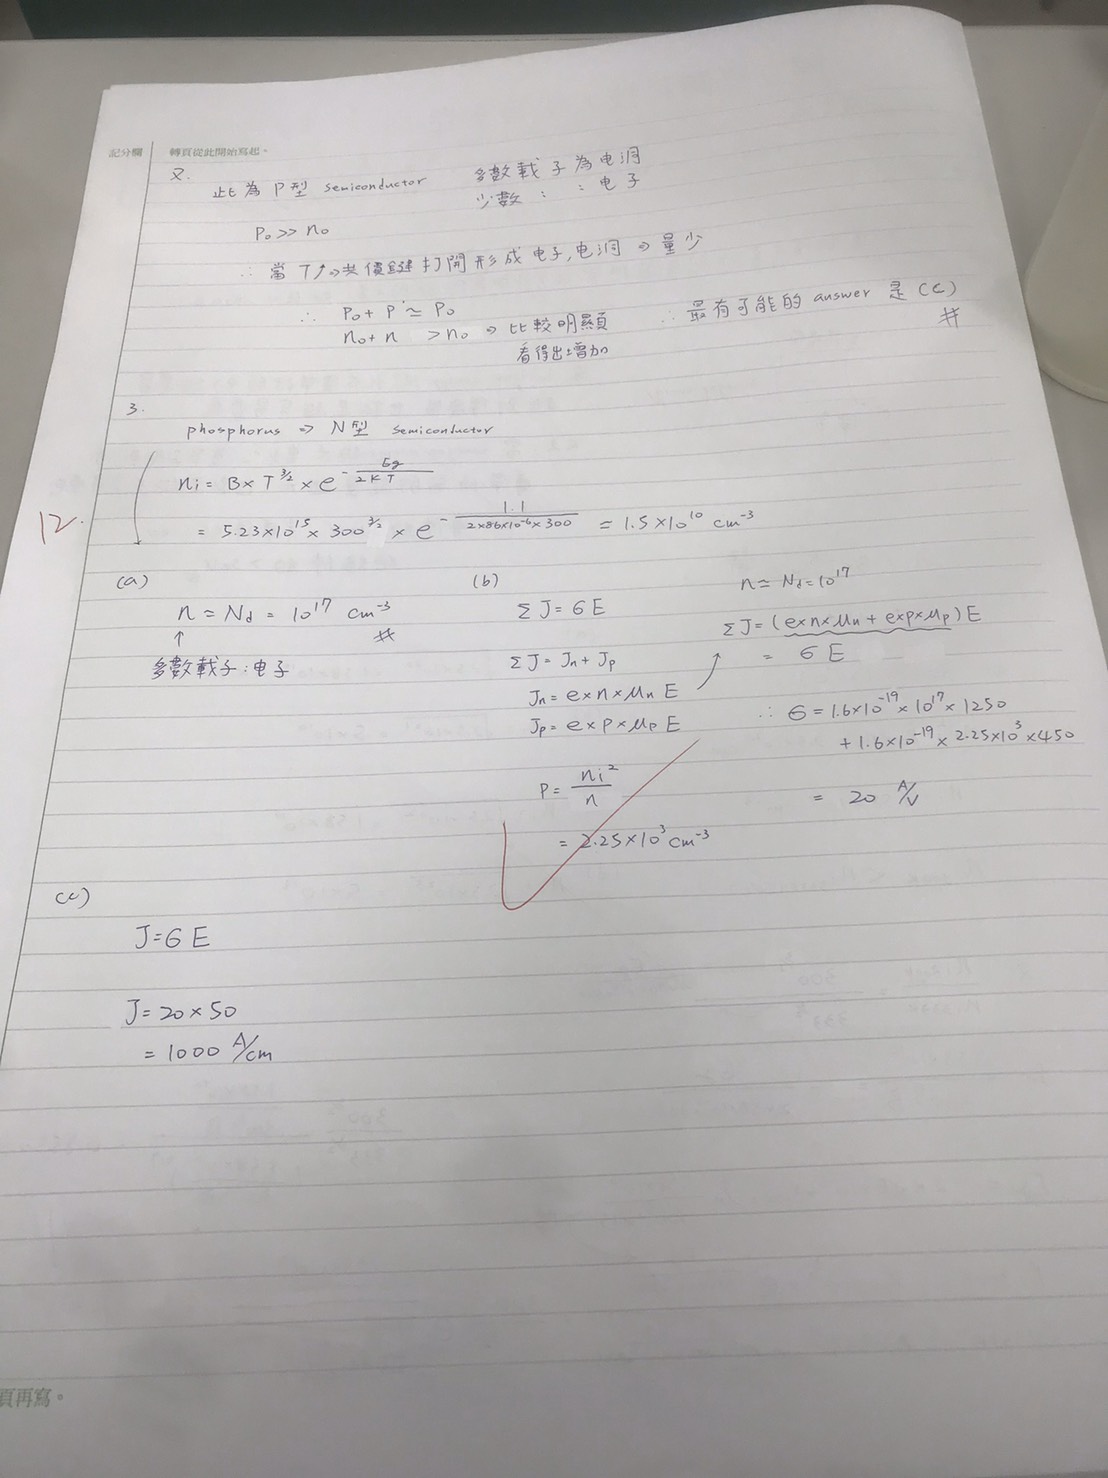 記分欄
轉頁從此開始寫起。
2.
此為 P型 semiconductor
多數載子為电洞
少數：：电子
P₀ >> n₀
∴ 當 T↑ → 共價鍵打開形成电子,电洞 → 量少
∴ P₀ + P ≃ P₀
n₀ + n > n₀ → 比較明顯
看得出增加
∴ 最有可能的 answer 是 (C) #
3.
phosphorus => N型 semiconductor
ni = B × T^3/2 × e^-Eg/2KT
= 5.23×10^15 × 300^3/2 × e^-1.1/2×86×10^-6×300 = 1.5×10^10 cm^-3
12.
(a)
n ≃ Nd = 10^17 cm^-3 #
↑
多數載子:电子
(b)
ΣJ = 6 E
ΣJ = Jn + Jp
Jn = e×n×μn E
Jp = e×p×μp E
P = ni²/n
= 2.25×10³ cm^-3
n ≃ Nd = 10^17
ΣJ = (e×n×μn + e×p×μp) E
= 6 E
∴ 6 = 1.6×10^-19 × 10^17 × 1250
+ 1.6×10^-19 × 2.25×10³ × 450
= 20 A/V
(c)
J = 6 E
J = 20 × 50
= 1000 A/cm
頁再寫。